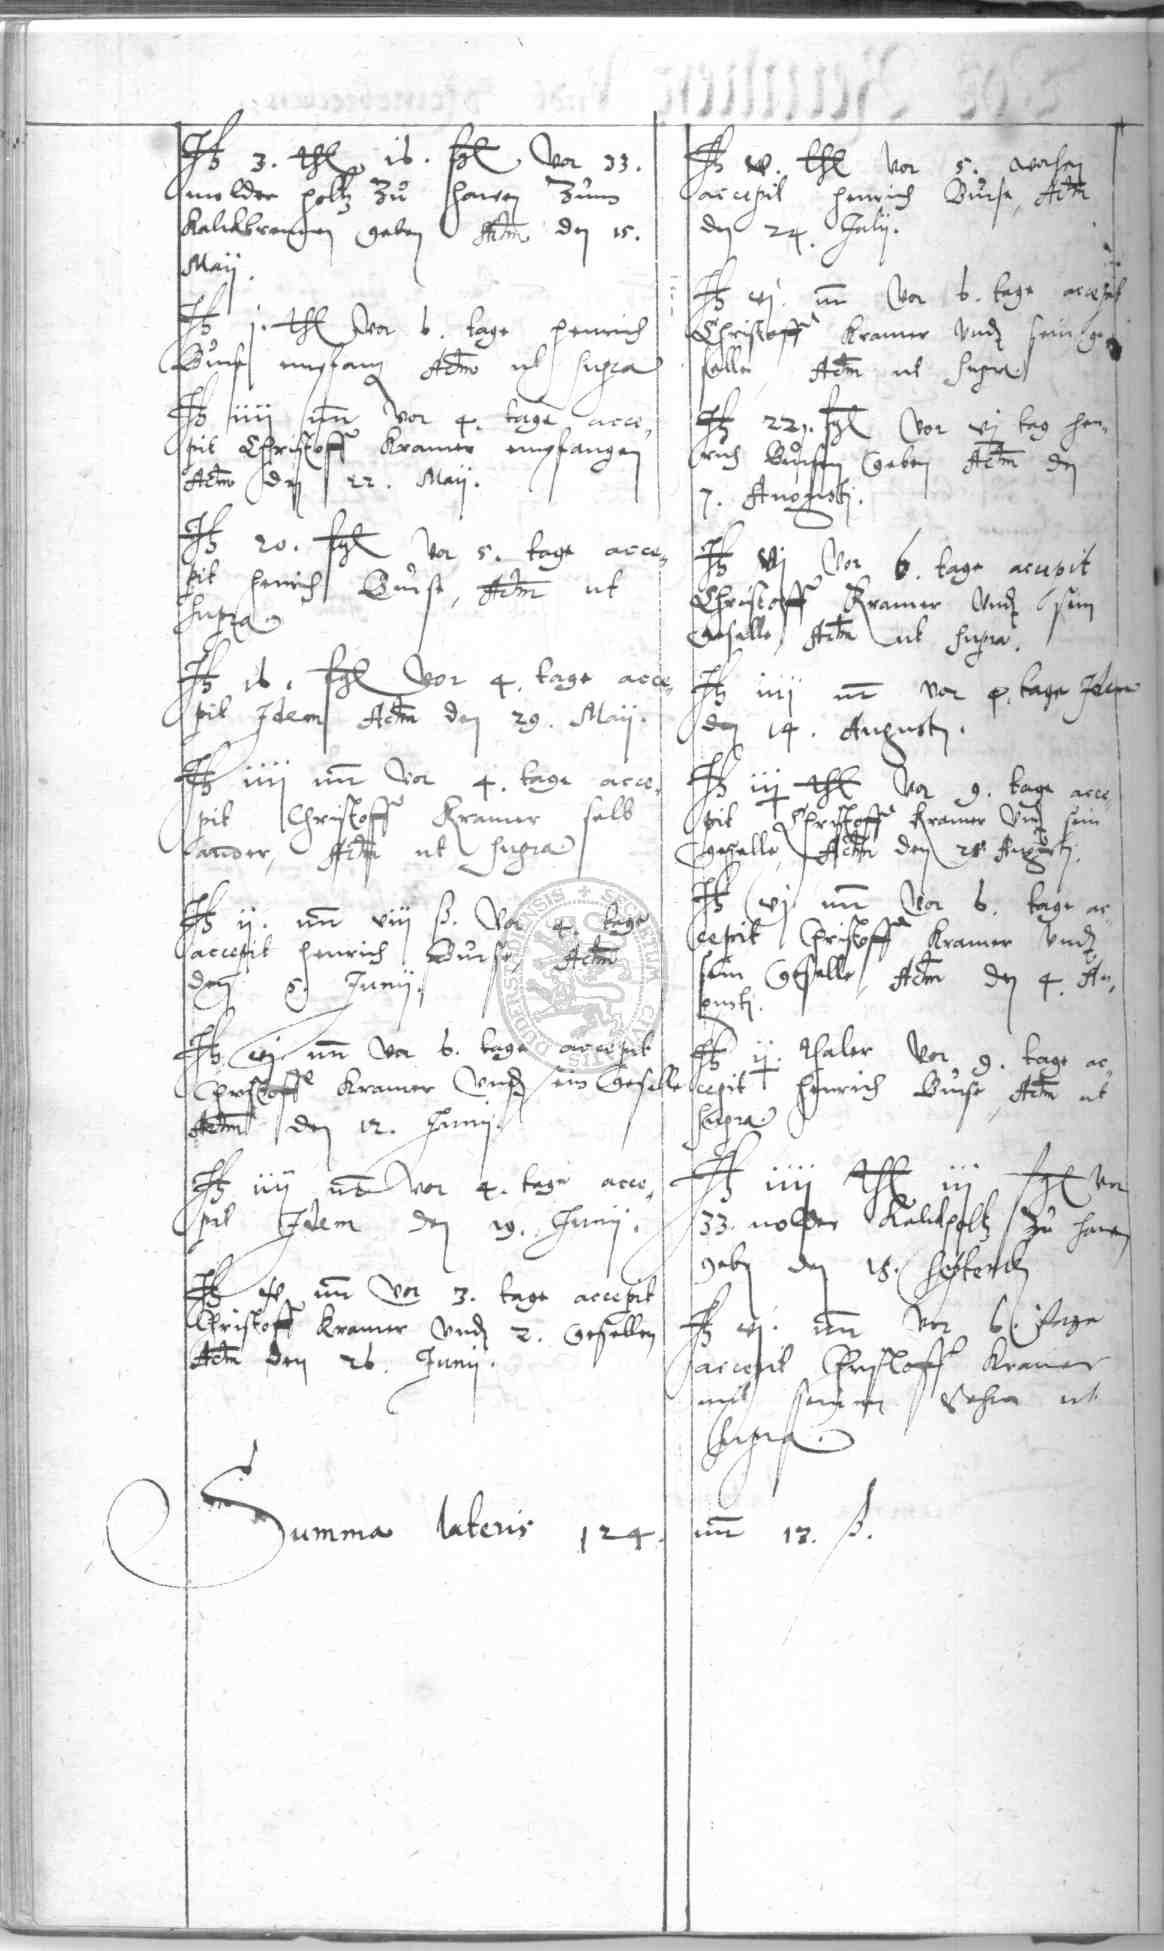 It 3. thl 16. ſgl vor 33.
molder holtz zů hawen zum
Kalckbrennen geben Actm den 15.
Maij.
It j. thl vor 6. tage henrich
Bůrse empfang Actm ut supra
It iiij mr vor 4. tage acce,
pit Christoff Kramer empfangen
Actm den 22. Maij.
It 20. ſgl vor 5. tage acce,
pit henrich Bůrse, Actm ut
supra
It 16. ſgl vor 4. tage acce,
pit Idem Actm den 29. Maij.
It iiij mr vor 4. tage acce,
pit Christoff Kramer selb
ander, Actm ut supra
It ij. mr viij ß. vor 4. tage
accepit henrich Bůrse, Actm
den 5. Junij.
It vj mr vor 6. tage accepit
Christoff Kramer vnd sein Geselle
Actm den 12. Junij.
It iiij mr vor 4. tage acce,
pit Idem den 19. Junij.
It mr vor 3. tage accepit
Christoff Kramer vnd 2. Gesellen
Actm den 26. Junij.
It thl vor 5. wochen
accepit henrich Bůrse, Actm
den 24. Julij.
It vj. mr vor 6. tage accepit
Christoff Kramer vnd sein ge,
selle, Actm ut supra
It 22j. ſgl vor vj tag hen,
rich Bůrsen geben Actm den
7. Augusti.
It vj vor 6. tage accepit
Christoff Kramer vnd sein
Geselle, Actm ut supra.
It iiij mr vor 4. tage Idem
den 14. Augusti.
It iij thl vor 9. tage acce,
pit Christoff Kramer vnd sein
Geselle, Actm den 28. Augusti.
It vj mr vor 6. tage ac,
cepit Christoff Kramer vnd
sein Geselle, Actm den 4. Au,
gusti.
It ij. thaler vor 9. tage ac,
cepit henrich Bůrse, Actm ut
supra.
It iiij thl iij ſgl vor
33. molder Kalckholtz zů hawen
geben den 18. Septemb
It vj. mr vor 6. tage
accepit Christoff Kramer
mit seinem ut
supra.
Summa lateris 124. mr 13. ß.